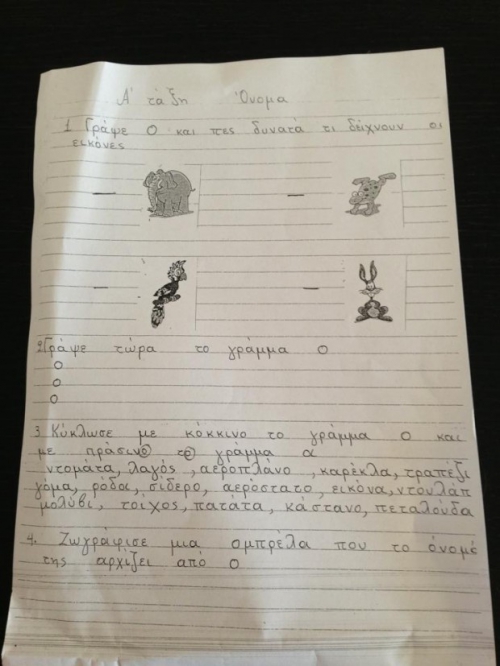 Α' τάξη Όνομα
1 Γράψε Ο και πες δυνατά τι δείχνουν οι
εικόνες
2. Γράψε τώρα το γράμμα ο
ο
ο
ο
3 Κύκλωσε με κόκκινο το γράμμα ο και
με πράσινο το γράμμα α
ντομάτα, λαγός, αεροπλάνο, καρέκλα, τραπέζι
γόμα, ρόδα, σίδερο, αερόστατο, εικόνα, ντουλάπ
μολύβι, τοίχος, πατάτα, κάστανο, πεταλούδα
4. Ζωγράφισε μια ομπρέλα που το όνομά
της αρχίζει από ο